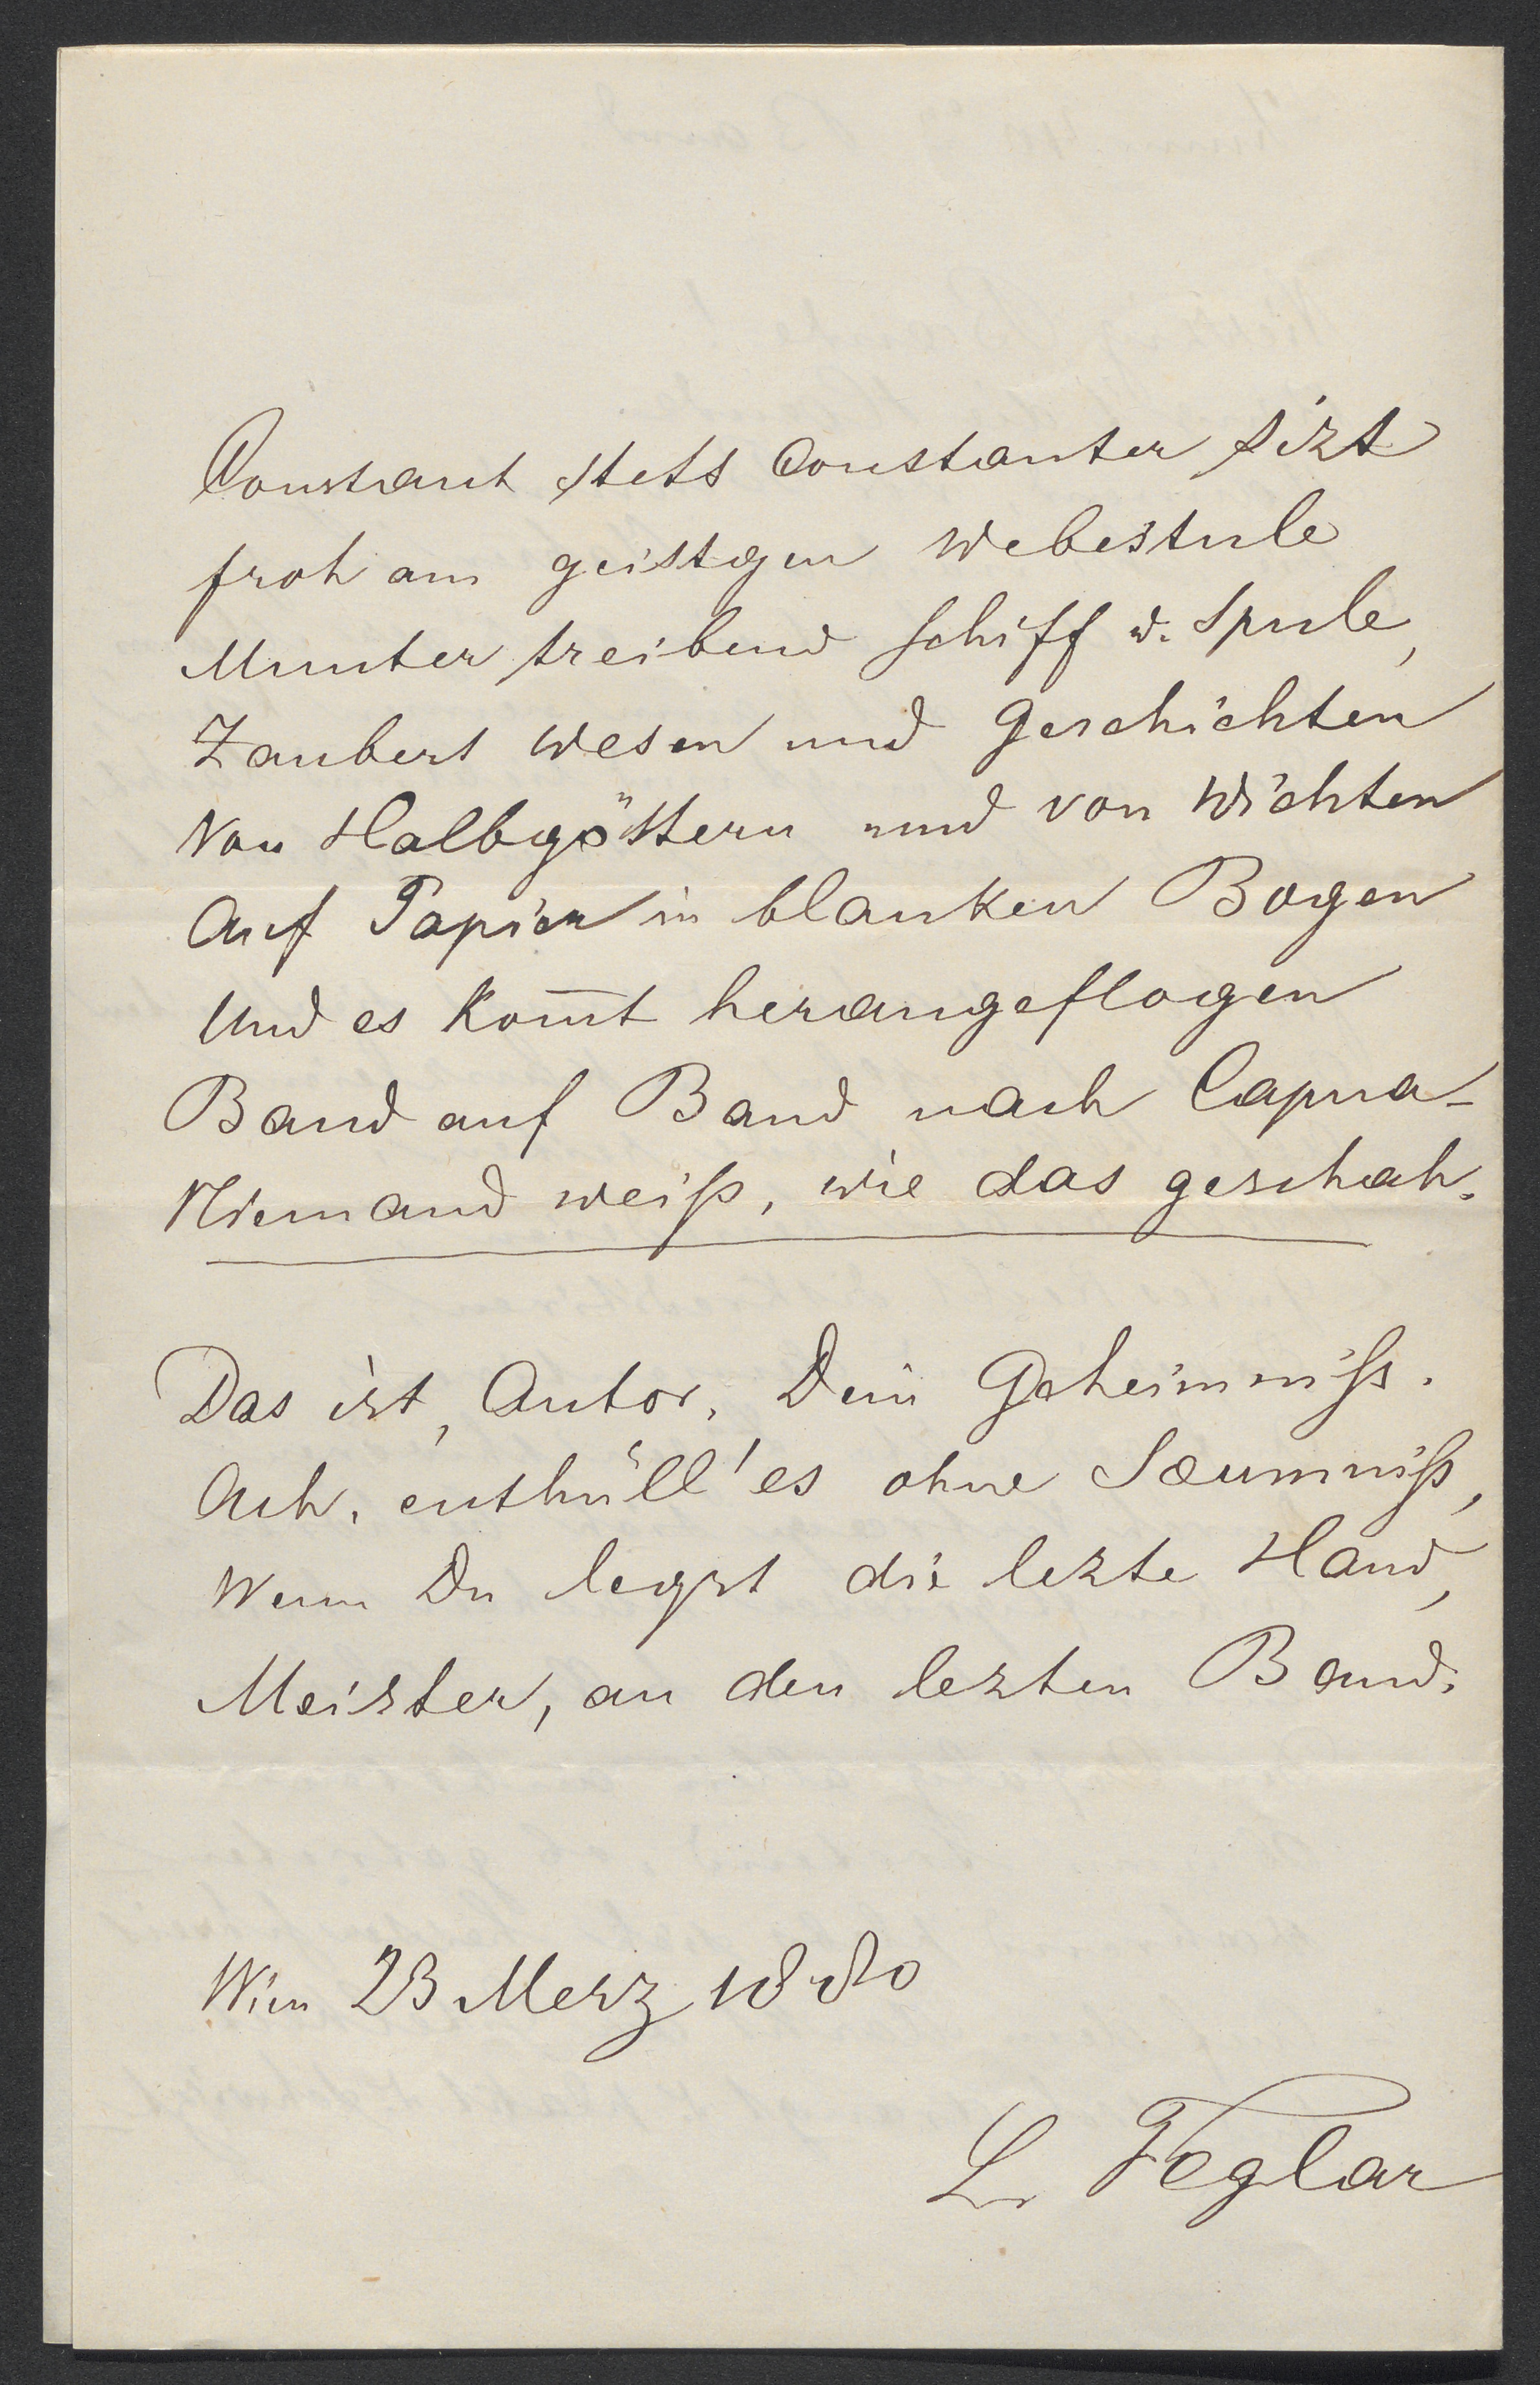 Constant stets Constanter sizt
froh am geistgen Webestule
Munter treibend Schiff u. Spule,
Zaubert Wesen und Geschichten
Von Halbgöttern und von Wichten
Auf Papier in blanken Bogen
Und es kom̅t herangeflogen
Band auf Band nach Capua –
Niemand weiß, wie das geschah.
Das ist, Autor, Dein Geheimniß.
Ach, enthüll' es ohne Sæumniß,
Wenn Du legst die lezte Hand,
Meister, an den lezten Band.
Wien 23 Merz 1880
L Foglar